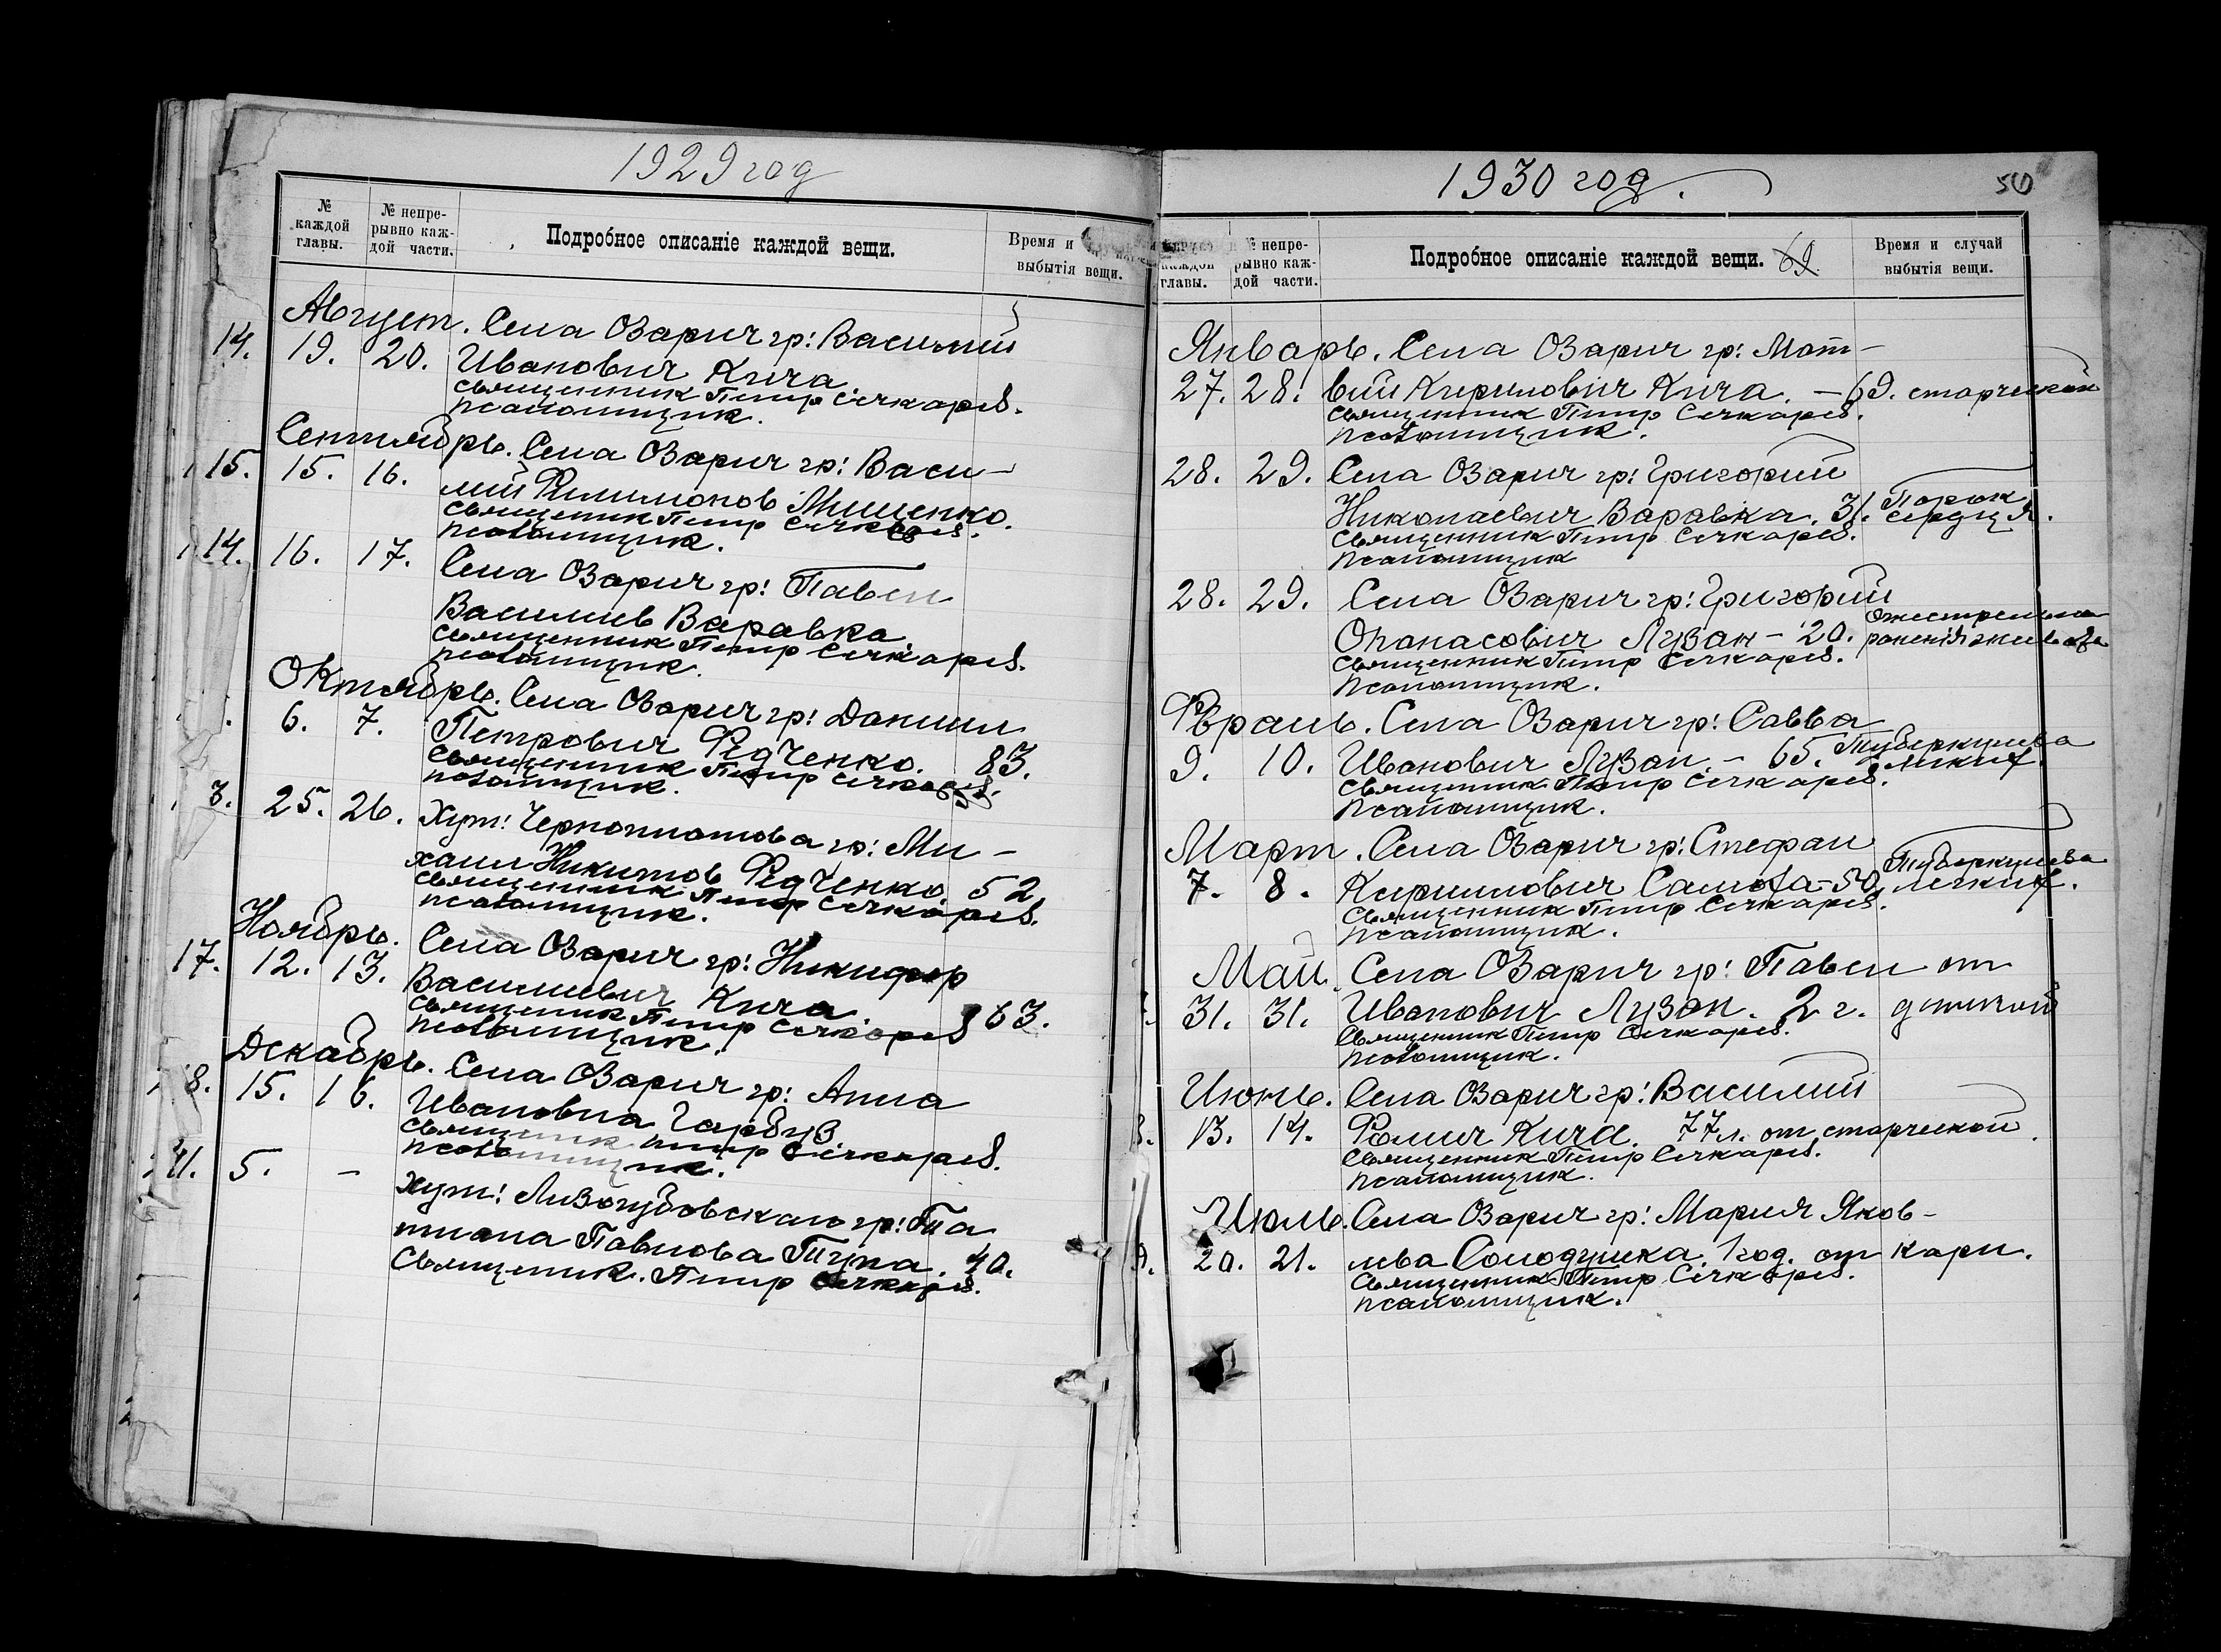 1929 год
№ каждой главы.
№ непре-рывно каж-дой части.
Подробное описаніе каждой вещи.
Время и
выбытія вещи.
Август. Села Озарич гр: Василий
14. 19. 20. Иванович Кича.
Священник Петр Сечкарев.
псаломщик.
Сентябрь. Села Озарич гр: Васи-
15. 15. 16. лий Филимонов Мищенко.
Священик Петр Сечкарев.
псаломщик.
14. 16. 17. Села Озарич гр: Павел
Василиев Варавка.
Священник Петр Сечкарев.
псаломщик.
Октябрь. Села Озарич гр: Даниил
6. 7. Петрович Федченко. 83.
Священник Петр Сечкарев.
псаломщик.
3. 25. 26. Хут: Черноплатова гр: Ми-
хаил Никитов Федченко. 52.
Священник Петр Сечкарев.
псаломщик.
Ноябрь. Села Озарич гр: Никифор
17. 12. 13. Василиевич Кича. 63.
Священик Петр Сечкарев
псаломщик.
Декабрь. Села Озарич гр: Анна
8. 15. 16. Ивановна Гарбуз.
Священик Петр Сечкарев.
псаломщик.
21. 5. – хут: Лизогубовскаго гр: Та
тиана Павлова Тупа. 40.
Священик. Петр Сечкарев.
1930 год.
50
каждой главы.
№ непре-рывно каж-дой части.
Подробное описаніе каждой вещи. 69
Время и случай
выбытія вещи.
Январь. Села Озарич гр: Мат-
27. 28. вий Кирилович Кича. – 69. старческой
Священник Петр Сечкарев.
псаломщик.
28. 29. Села Озарич гр: Григорий
Николаевич Варавка. 31. Порок сердця.
Священник Петр Сечкарев.
псаломщик
28. 29. Села Озарич гр: Григорий
Опанасович Лузан – 20. ранения живота
Священник Петр Сечкарев.
псаломщик.
Февраль. Села Озарич гр: Савва
9. 10. Иванович Лузан. – 65. Туберкулеза легких.
Священник Петр Сечкарев.
псаломщик.
Март. Села Озарич гр: Стефан
7. 8. Кирилович Самоха – 50. Туберкулеза легких.
Священник Петр Сечкарев.
псаломщик.
Май. Села Озарич гр: Павел от
31. 31. Иванович Лузан. 2 г. детской
Священник Петр Сечкарев.
псаломщик.
Июнь. Села Озарич гр: Василий
13. 14. Фомич Кича. 77 л. от старческой.
Священник Петр Сечкарев.
псаломщик.
Июль. Села Озарич гр: Мария Яков-
9. 20. 21. лева Солодушка. 1 год. от кори.
Священник Петр Сечкарев.
псаломщик.